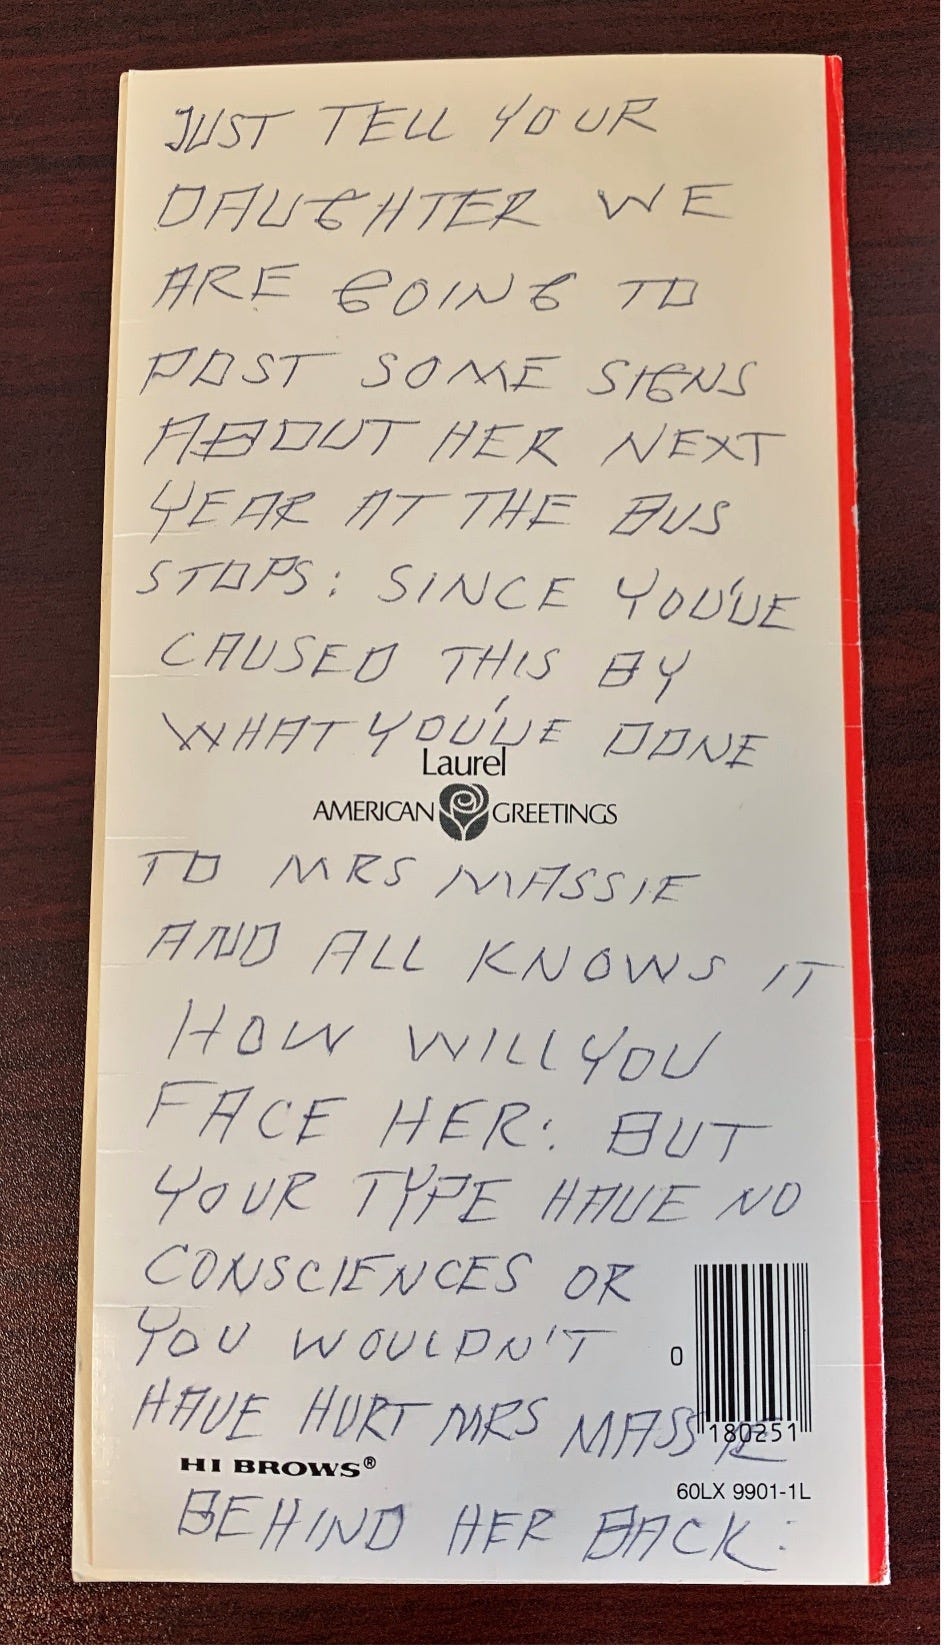 JUST TELL YOUR
DAUGHTER WE
ARE GOING TO
POST SOME SIGNS
ABOUT HER NEXT
YEAR AT THE BUS
STOPS: SINCE YOU'VE
CAUSED THIS BY
WHAT YOU'VE DONE
Laurel
AMERICAN GREETINGS
TO MRS MASSIE
AND ALL KNOWS IT
HOW WILL YOU
FACE HER: BUT
YOUR TYPE HAVE NO
CONSCIENCES OR
YOU WOULDN'T
HAVE HURT MRS MASSIE
0 180251
HI BROWS®
60LX 9901-1L
BEHIND HER BACK: